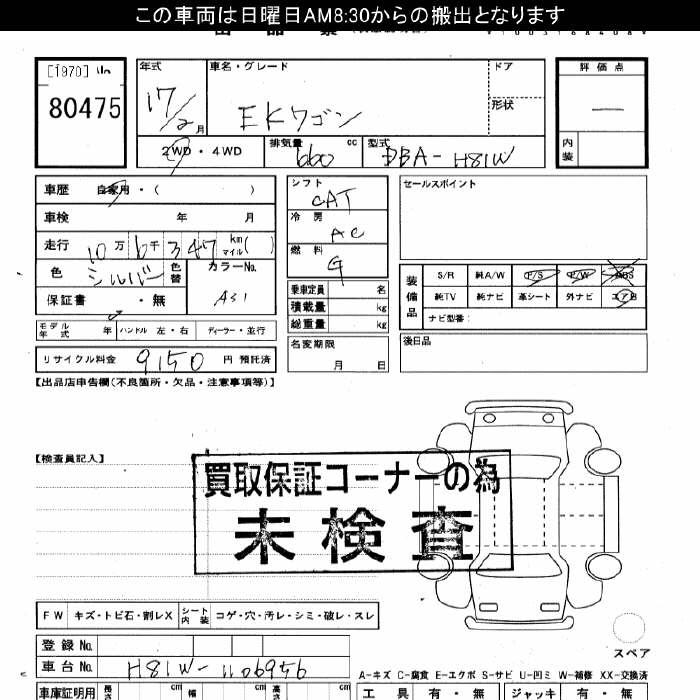 この車両は日曜日AM8:30からの搬出となります
[1970]
80475
年式
17/2月
車名・グレード
EKワゴン
ドア
形状
評価点
―
内装
2WD・4WD
排気量 660 cc
型式 DBA-H81W
車歴 自家用・( )
車検 年 月
走行 10万6千347 km マイル( )
色 シルバー 色替
カラーNo.
A31
保証書 ・無
モデル年式 年
ハンドル 左・右
ディーラー・並行
リサイクル料金 9150 円 預託済
シフト
CAT
冷房
AC
燃料
G
乗車定員 名
積載量 kg
総重量 kg
名変期限
月 日
セールスポイント
装備品
S/R 純A/W P/S P/W ABS
純TV 純ナビ 革シート 外ナビ エアB
ナビ型番:
後日品
【出品店申告欄(不良箇所・欠品・注意事項等)】
【検査員記入】
買取保証コーナーの為
未検査
FW キズ・トビ石・割レX
シート内装 コゲ・穴・汚レ・シミ・破レ・スレ
スペア
登録No.
車台No. H81W-1106956
A-キズ C-腐食 E-エクボ S-サビ U-凹ミ W-補修 XX-交換済
車庫証明用 長さ cm 幅 cm 高さ cm
工具 有・無 ジャッキ 有・無